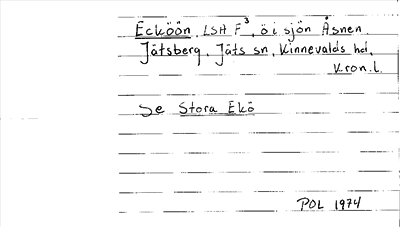 Ecköön, LSH F³, ö i sjön Åsnen.
Jätsberg, Jäts sn, Kinnevalds hd,
Kron.l.
Se Stora Ekö
POL 1974